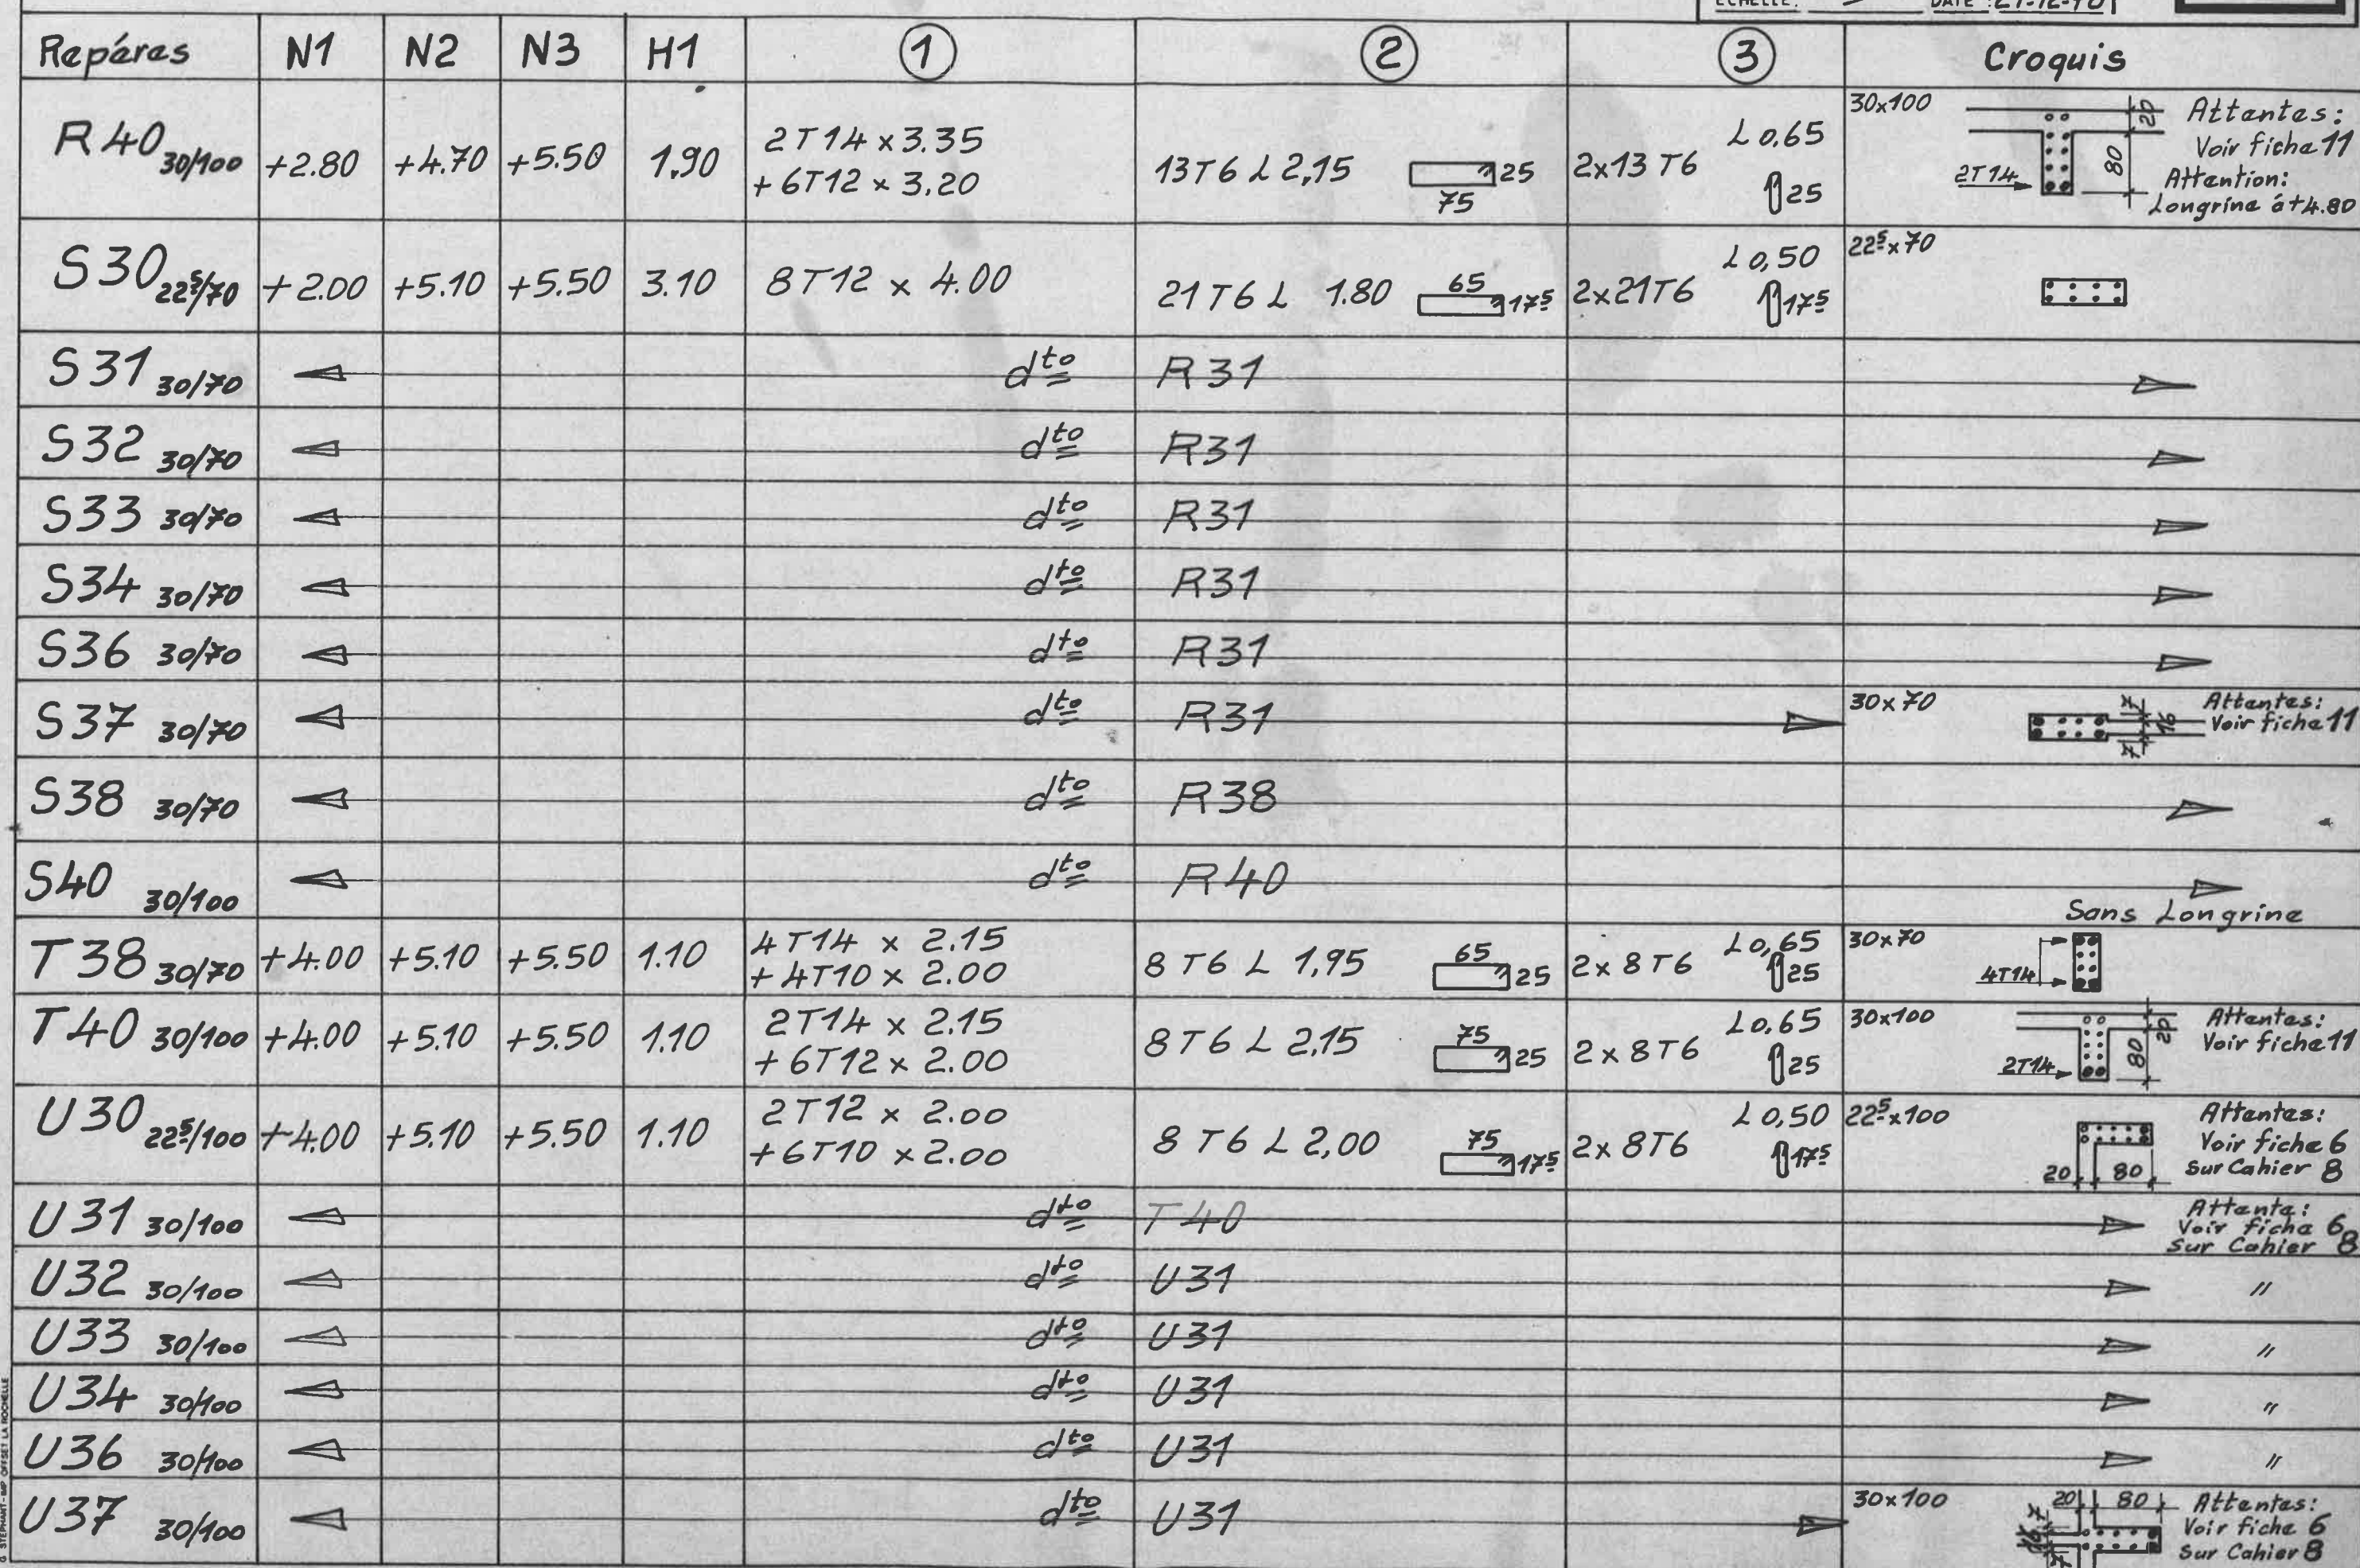 ECHELLE: DATE : 21-12-70
Repéres N1 N2 N3 H1 1 2 3 Croquis
R40 30/100 +2.80 +4.70 +5.50 1,90 2T14 x 3.35
+ 6T12 x 3,20 13T6 L 2,15 75 25 2x13 T6 L 0,65 25 30x100 20 80 2T14 Attentes:
Voir fiche 11
Attention:
Longrine à +4.80
S30 22⁵/70 +2.00 +5.10 +5.50 3.10 8T12 x 4.00 21T6 L 1.80 65 17⁵ 2x21T6 L 0,50 17⁵ 22⁵x70
S31 30/70 dto R31
S32 30/70 dto R31
S33 30/70 dto R31
S34 30/70 dto R31
S36 30/70 dto R31
S37 30/70 dto R31 30x70 7 16 7 Attentes:
Voir fiche 11
S38 30/70 dto R38
S40 30/100 dto R40
Sans Longrine
T38 30/70 +4.00 +5.10 +5.50 1.10 4T14 x 2.15
+ 4T10 x 2.00 8 T6 L 1,95 65 25 2x 8T6 L 0,65 25 30x70 4T14
T40 30/100 +4.00 +5.10 +5.50 1.10 2T14 x 2.15
+ 6T12 x 2.00 8T6 L 2,15 75 25 2 x 8T6 L 0,65 25 30x100 20 80 2T14 Attentes:
Voir fiche 11
U30 22⁵/100 +4.00 +5.10 +5.50 1.10 2T12 x 2.00
+ 6T10 x 2.00 8 T6 L 2,00 75 17⁵ 2x 8T6 L 0,50 17⁵ 22⁵x100 20 80 Attentes:
Voir fiche 6
Sur Cahier 8
U31 30/100 dto T40 Attente:
Voir fiche 6
Sur Cahier 8
U32 30/100 dto U31 "
U33 30/100 dto U31 "
U34 30/100 dto U31 "
U36 30/100 dto U31 "
U37 30/100 dto U31 30x100 20 80 7 16 7 Attentes:
Voir fiche 6
Sur Cahier 8
G. STEPHANT - IMP OFFSET LA ROCHELLE